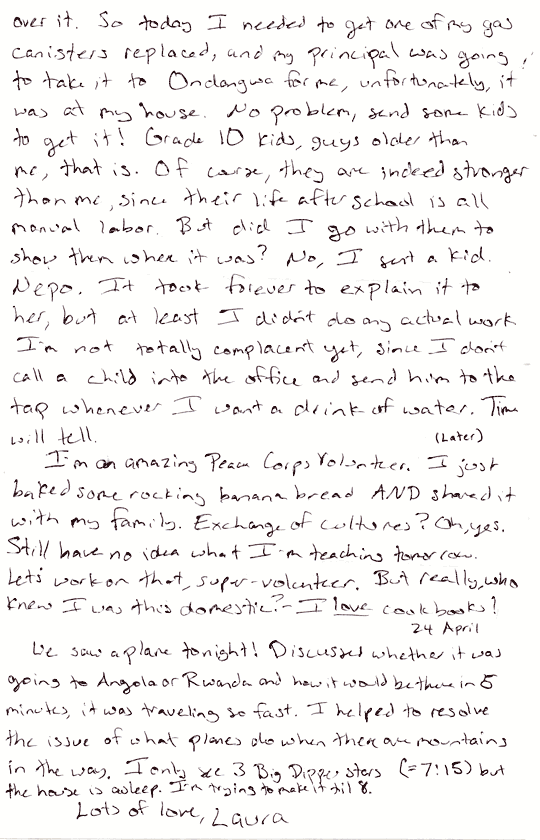 over it. So today I needed to get one of my gas
canisters replaced, and my principal was going
to take it to Ondangwa for me, unfortunately, it
was at my house. No problem, send some kids
to get it! Grade 10 kids, guys older than
me, that is. Of course, they are indeed stronger
than me, since their life after school is all
manual labor. But did I go with them to
show them where it was? No, I sent a kid.
Nepo. It took forever to explain it to
her, but at least I didn't do any actual work
I'm not totally complacent yet, since I don't
call a child into the office and send him to the
tap whenever I want a drink of water. Time
will tell.
(Later)
I'm an amazing Peace Corps Volunteer. I just
baked some rocking banana bread AND shared it
with my family. Exchange of cultures? Oh, yes.
Still have no idea what I'm teaching tomorrow.
Let's work on that, super-volunteer. But really, who
knew I was this domestic? - I love cookbooks?
24 April
We saw a plane tonight! Discussed whether it was
going to Angola or Rwanda and how it would be there in 5
minutes, it was traveling so fast. I helped to resolve
the issue of what planes do when there are mountains
in the way. I only see 3 Big Dipper stars (=7:15) but
the house is asleep. I'm trying to make it til 8.
Lots of love, Laura